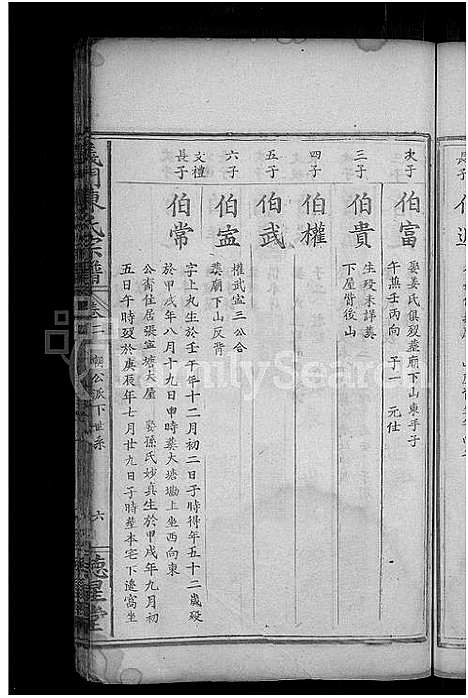 次子
伯富
娶姜氏俱歿葬廟下山東乎子
午兼壬丙向 子一 元仕
三子
伯貴
生歿未詳葬
下屋背後山
四子
伯權
五子
伯武
六子
伯寍
權武寍三公合
葬廟下山反背
文禮
長子
伯常
字上九生於壬午年十二月初二日子時得年五十二歲歿
於甲戌年八月十九日申時葬大塘墈上坐西向東
公喬住居張家塘大屋 娶孫氏妙真生於甲戌年九月初
五日午時歿於庚辰年七月廿九日子時葬本宅下邊窩坐
義門陳氏宗譜
卷二
公派下世系
六
德星堂
FamilySearch